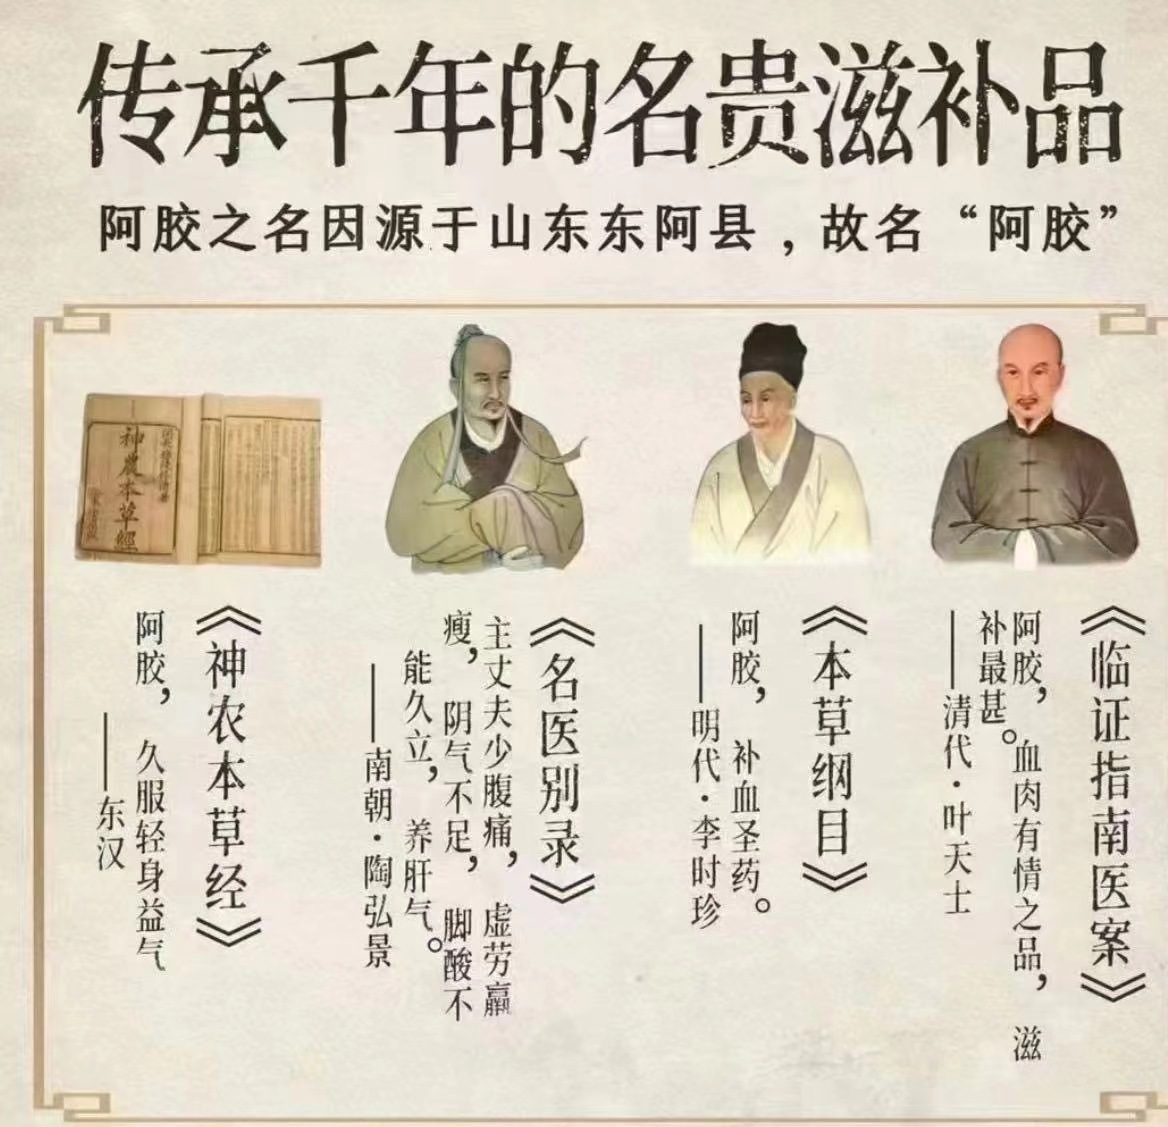 传承千年的名贵滋补品
阿胶之名因源于山东东阿县，故名“阿胶”
《临证指南医案》
阿胶，血肉有情之品，滋
补最甚。
——清代·叶天士
《本草纲目》
阿胶，补血圣药。
——明代·李时珍
《名医别录》
主丈夫少腹痛，虚劳羸
瘦，阴气不足，脚酸不
能久立，养肝气。
——南朝·陶弘景
《神农本草经》
阿胶，久服轻身益气
——东汉
神農本草經